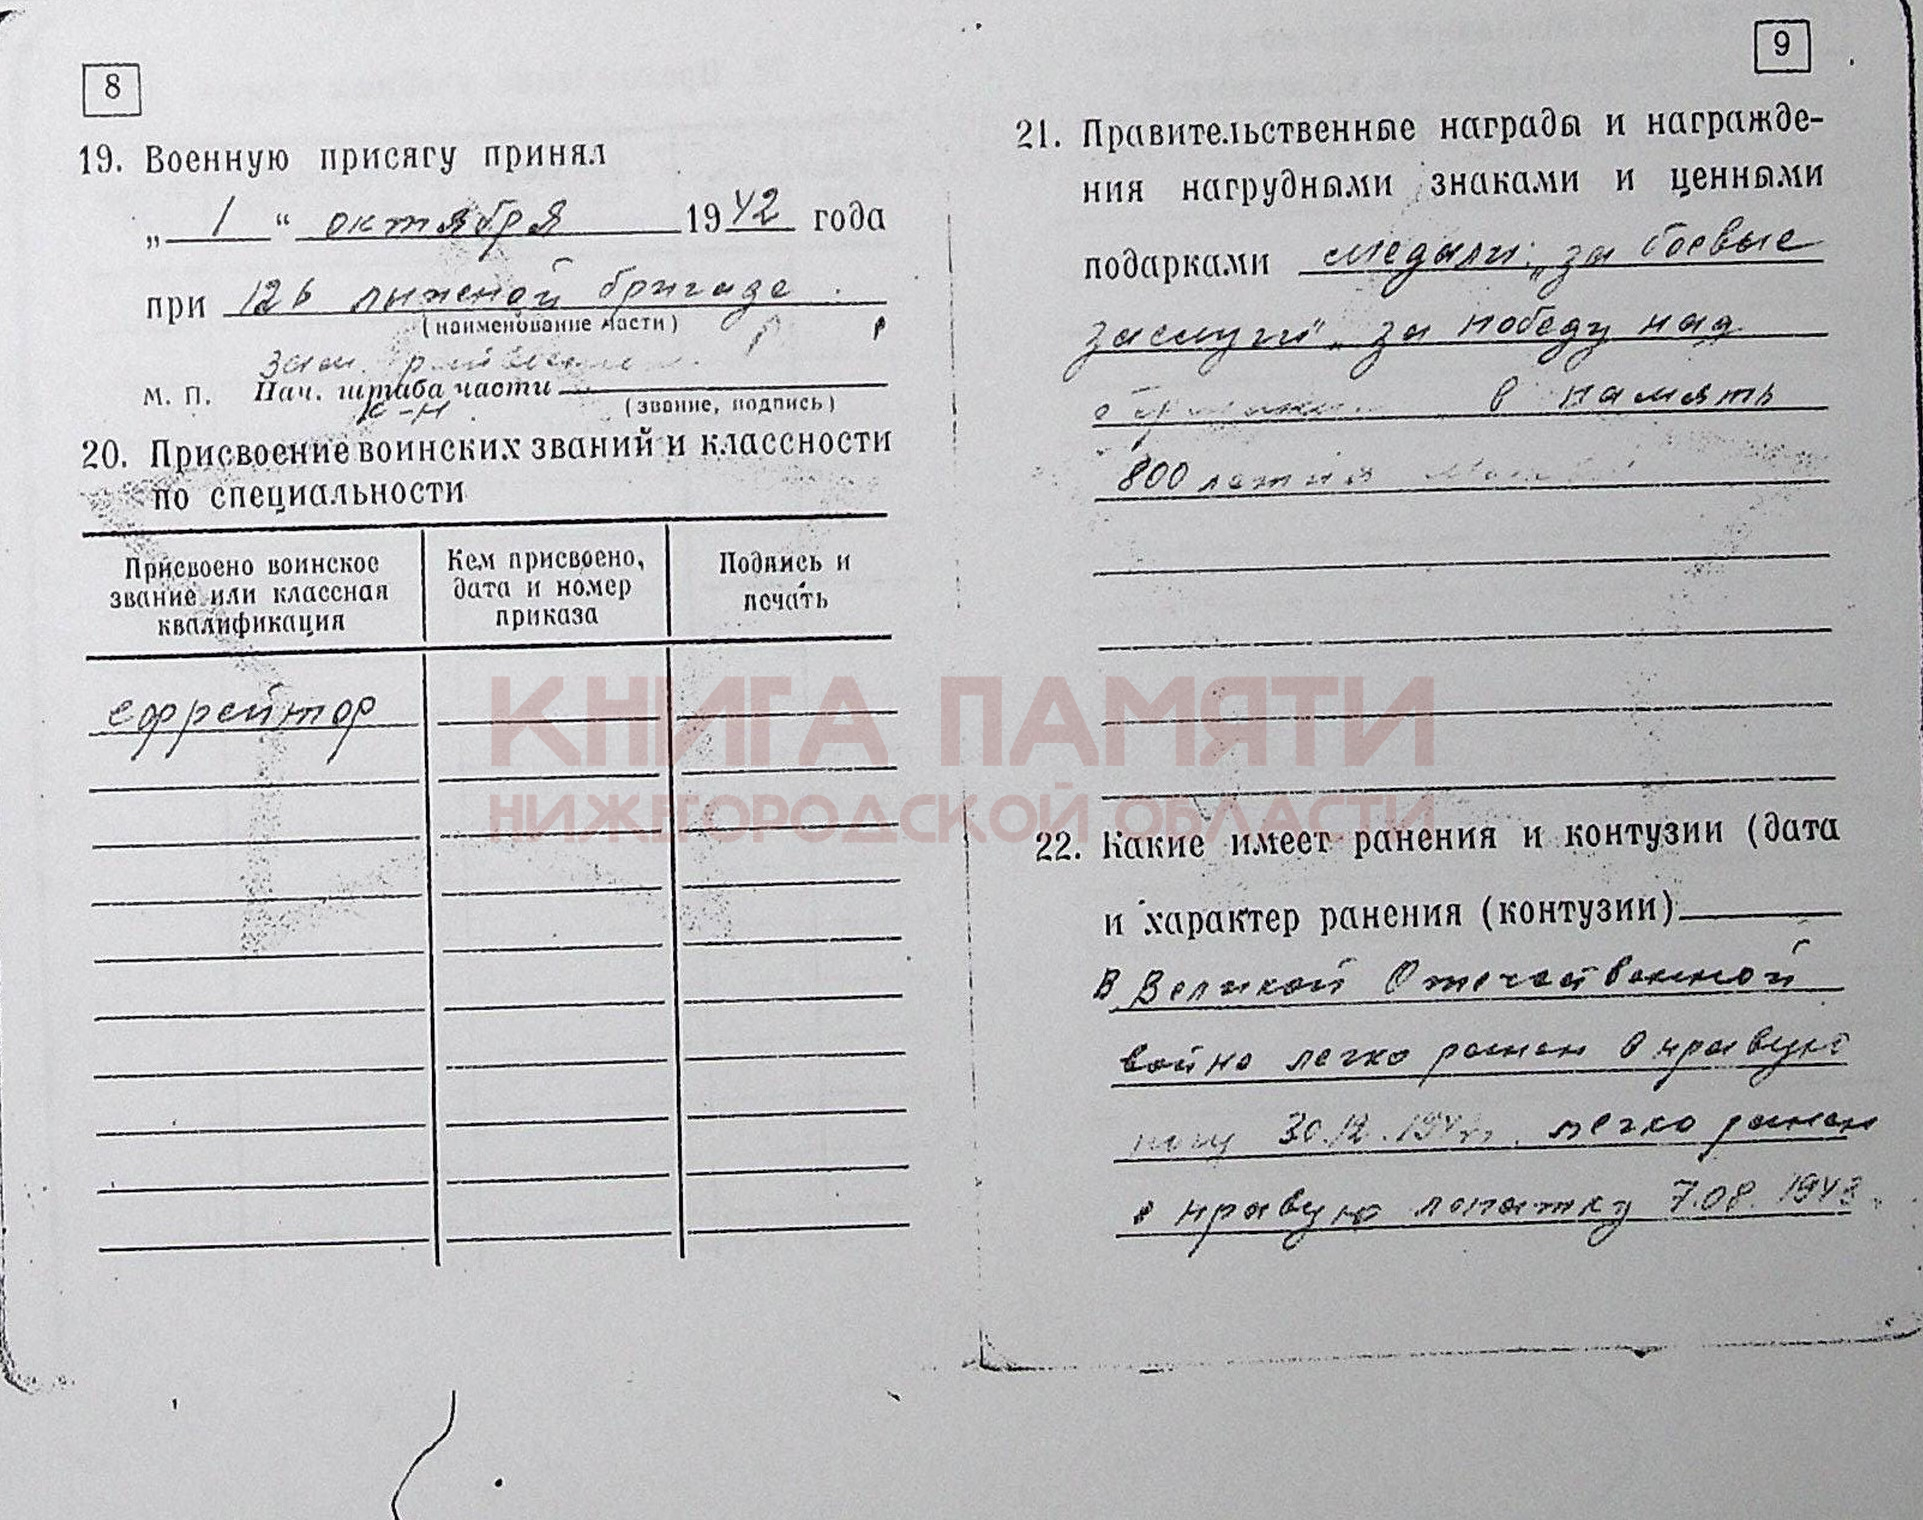 8
19. Военную присягу принял
„ 1 “ октября 1942 года
при 126 лыжной бригаде
(наименование части)
М. П. Нач. штаба части
(звание, подпись)
20. Присвоение воинских званий и классности
по специальности
Присвоено воинское
звание или классная
квалификация
Кем присвоено,
дата и номер
приказа
Подпись и
печать
ефрейтор
9
21. Правительственные награды и награжде-
ния нагрудными знаками и ценными
подарками медали: „за боевые
заслуги" „за победу над
в память
800 летия
22. Какие имеет ранения и контузии (дата
и характер ранения (контузии)
В Великой Отечественной
войне легко ранен в правую
30.12. легко ранен
в правую лопатку 7.08. 1943
КНИГА ПАМЯТИ
НИЖЕГОРОДСКОЙ ОБЛАСТИ